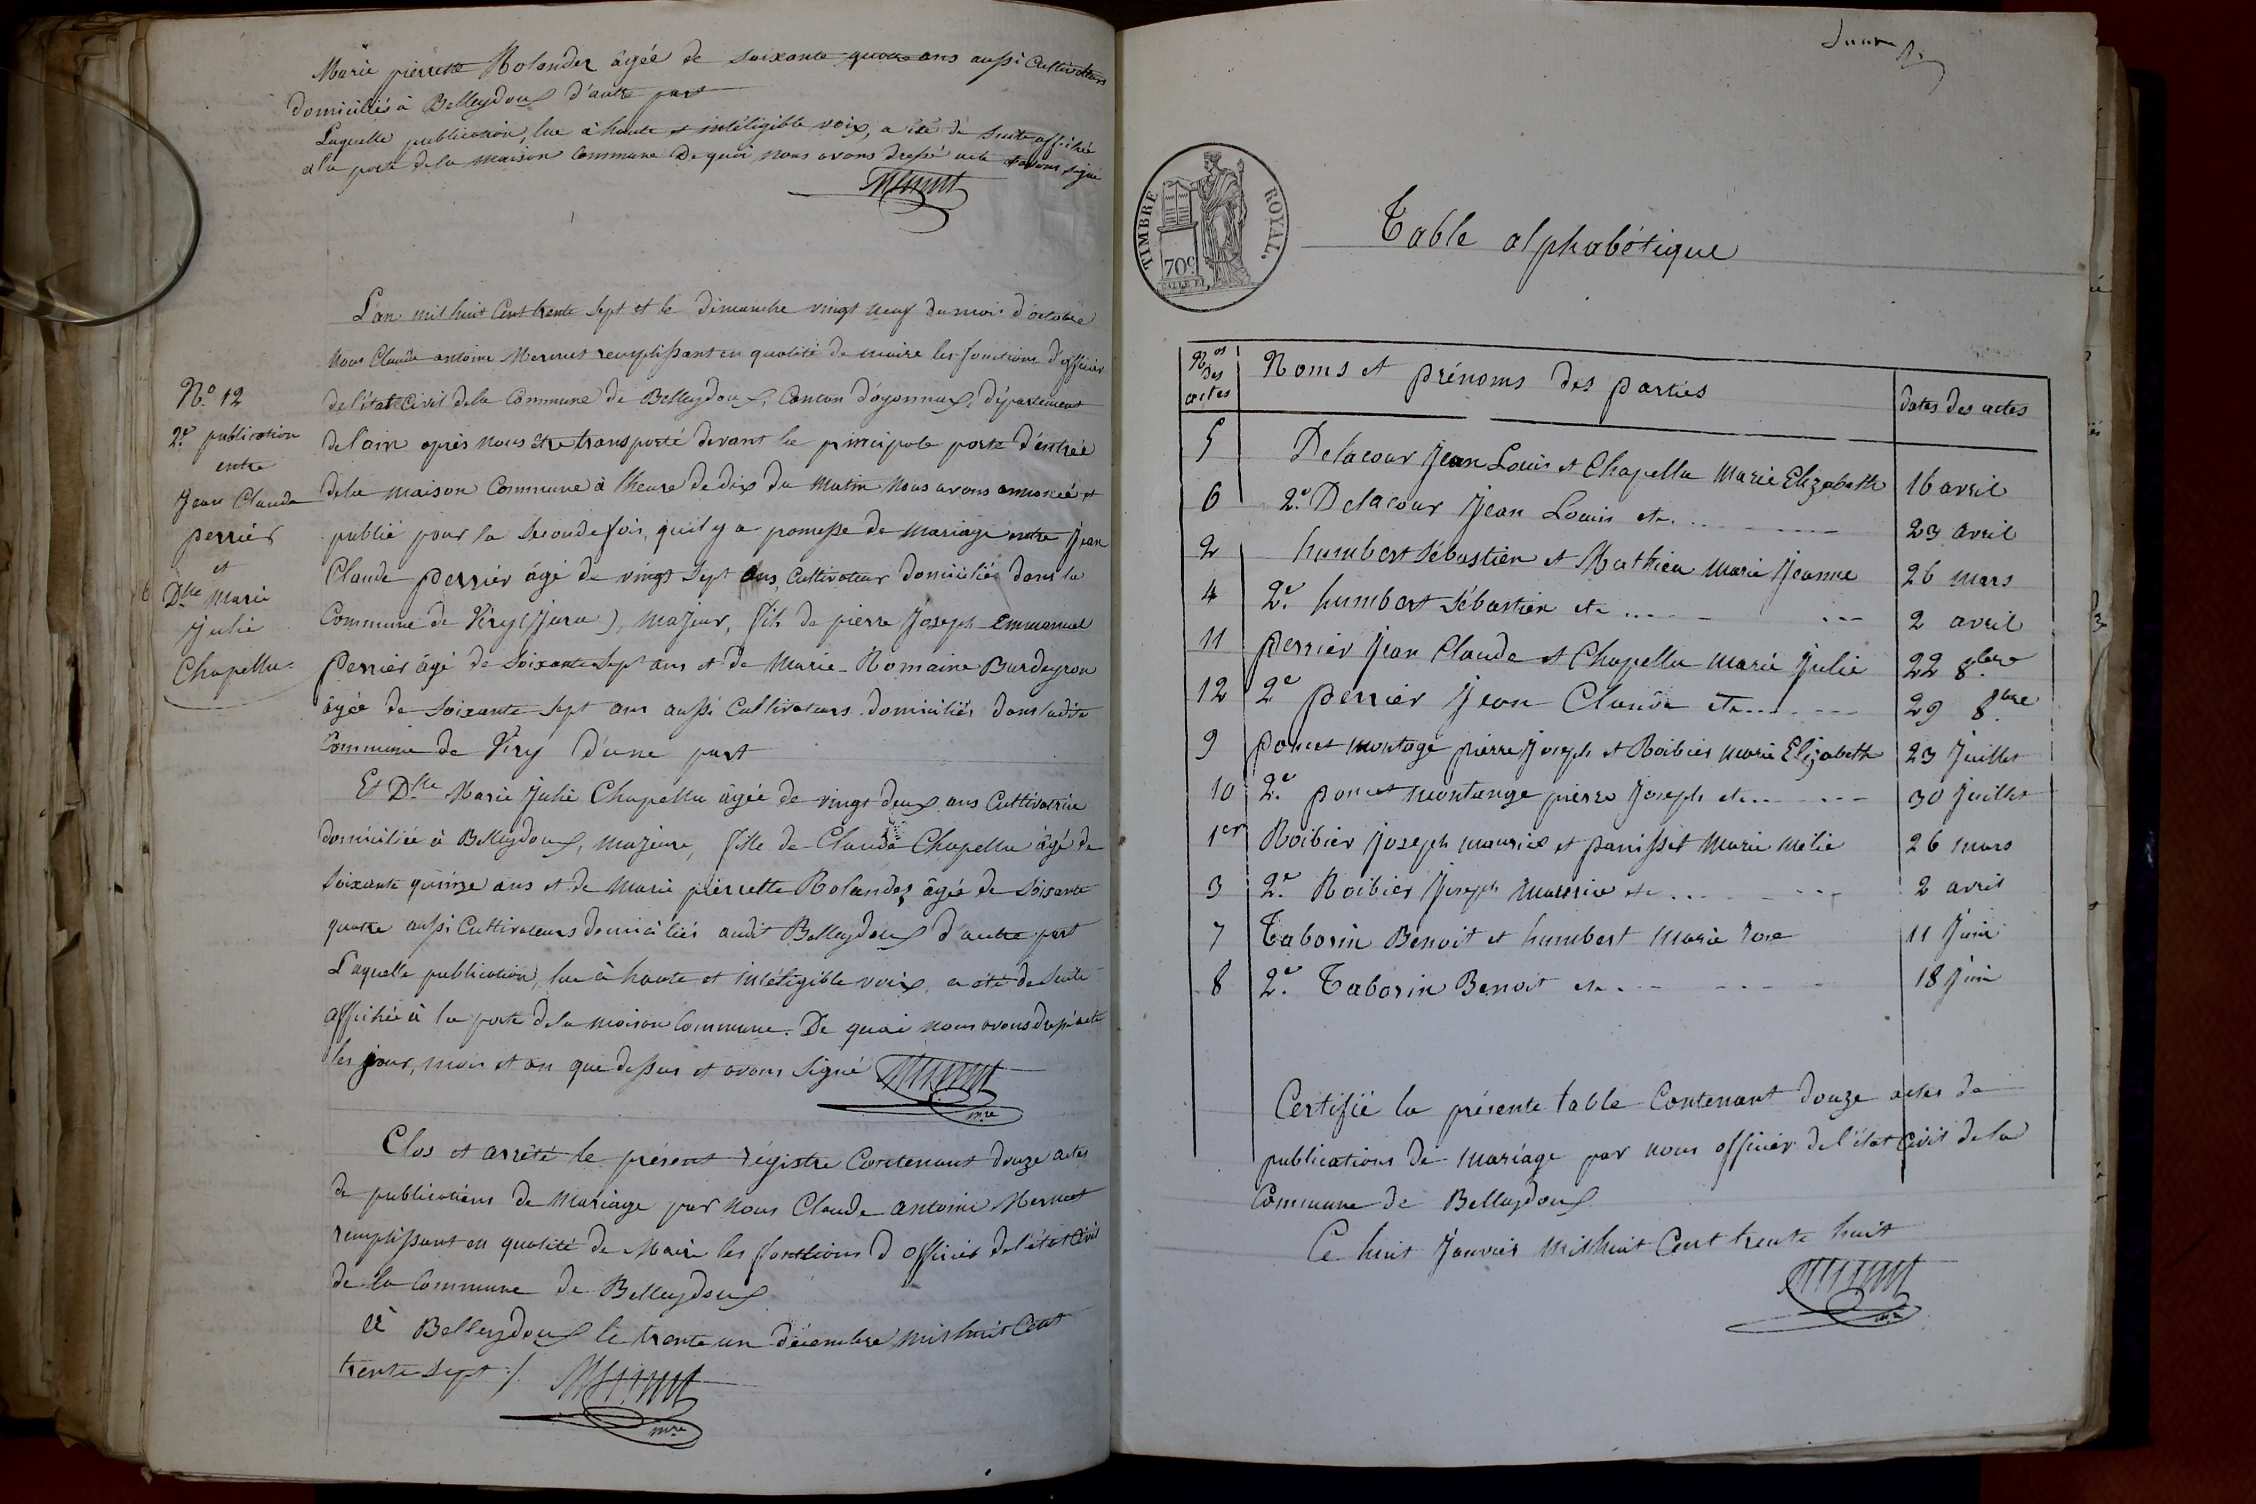 Marie pierrette Rolandez âgée de soixante quatre ans aussi Cultivateurs
domiciliés à Belleydoux d'autre part
Laquelle publication, lue à haute et intéligible voix, a été de suite affichée
à la porte de la maison Commune De quoi nous avons dressé acte et avons signé
Mermet
L'an mil huit Cent trente sept et le dimanche vingt neuf du mois d'octobre
Nous Claude antoine Mermet remplissant en qualité de maire les fonctions d'officier
de l'état Civil de la Commune de Belleydoux, Canton d'oyonnax, département
de l'ain après nous être transporté devant la principale porte d'entrée
de la maison Commune à l'heure de dix du matin Nous avons annoncé et
publié pour la seconde fois, qu'il y a pomesse de mariage entre Jean
Claude perrier âgé de vingt sept ans, Cultivateur domicilié dans la
Commune de Viry (Jura), majeur, fils de pierre Joseph Emmanuel
perrier âgé de soixante sept ans et de Marie Romaine Burdeyron
âgée de soixante sept ans aussi Cultivateurs domiciliés dans ladite
Commune de Viry d'une part
Et Dlle Marie Julie Chapellu âgée de vingt deux ans Cultivatrice
domiciliée à Belleydoux, majeure, fille de Claude Chapellu âgé de
soixante quinze ans et de Marie pierrette Rolandez âgée de soixante
quatre aussi Cultivateurs domiciliés audit Belleydoux d'autre part
Laquelle publication, lue à haute et intéligible voix, a été de suite
affichée à la porte de la maison Commune. De quoi nous avons dressé acte
les jour, mois et an que dessus et avons signé Mermet
mre
N.o 12
2.e publication
entre
Jean Claude
perrier
et
Dlle Marie
Julie
Chapellu
Clos et arrêté le présent régistre Contenant douze actes
de publications de mariage par nous Claude antoine Mermet
remplissant en qualité de Maire les fonctions d'officier de l'état Civil
de la Commune de Belleydoux
à Belleydoux le trente un décembre mil huit Cent
trente sept ./. Mermet
mre
TIMBRE ROYAL.
70c
Table alphabétique
Nos des actes Noms et prénoms des parties dates des actes
5 Delacour Jean Louis et Chapellu Marie Elizabeth 16 avril
6 2.e Delacour Jean Louis etc. 23 avril
2 humbert Sébastien et Mathieu Marie Jeanne 26 mars
4 2.e humbert Sébastien etc 2 avril
11 perrier Jean Claude et Chapellu Marie Julie 22 8.bre
12 2.e perrier Jean Claude etc. 29 8.bre
9 poncet montange pierre Joseph et Roibier Marie Elizabeth 23 Juillet
10 2.e poncet montange pierre Joseph etc. 30 Juillet
1er Roibier Joseph maurice et panisset Marie Mélie 26 mars
3 2.e Roibier Joseph Maurice etc 2 avril
7 Taborin Benoit et humbert Marie rose 11 Juin
8 2.e Taborin Benoit etc. 18 Juin
Certifié la présente table Contenant douze actes de
publications de mariage par nous officier de l'état Civil de la
Commune de Belleydoux
Ce huit Janvier mil huit Cent trente huit
Mermet
mre